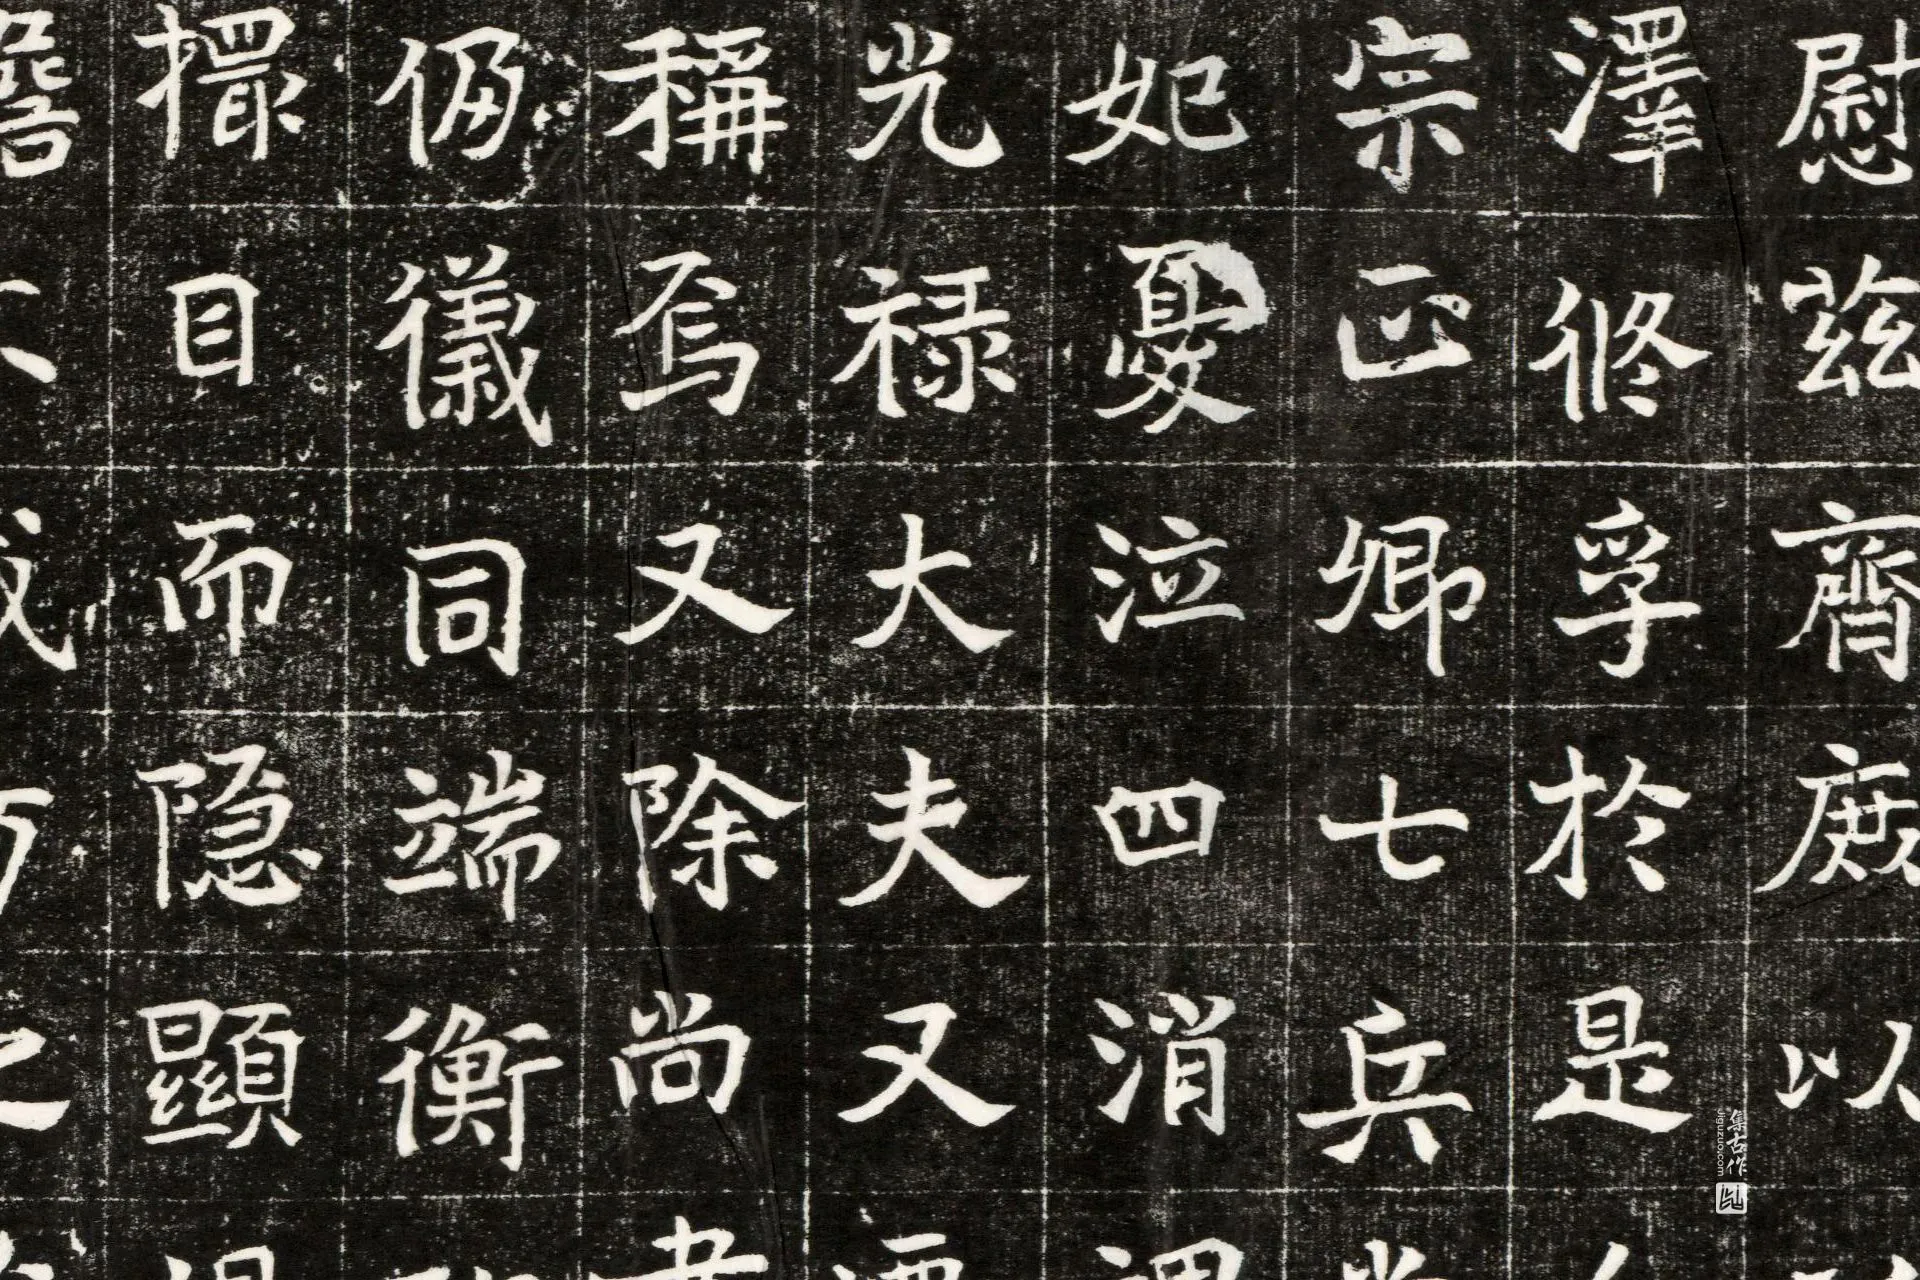 慰茲齊庶以
澤脩孚於是
宗正卿七兵尚
妃憂泣四消
光祿大夫又
稱焉又除尚書
仍儀同端衡
目而隱顯
集古作
Jiguzuo.com